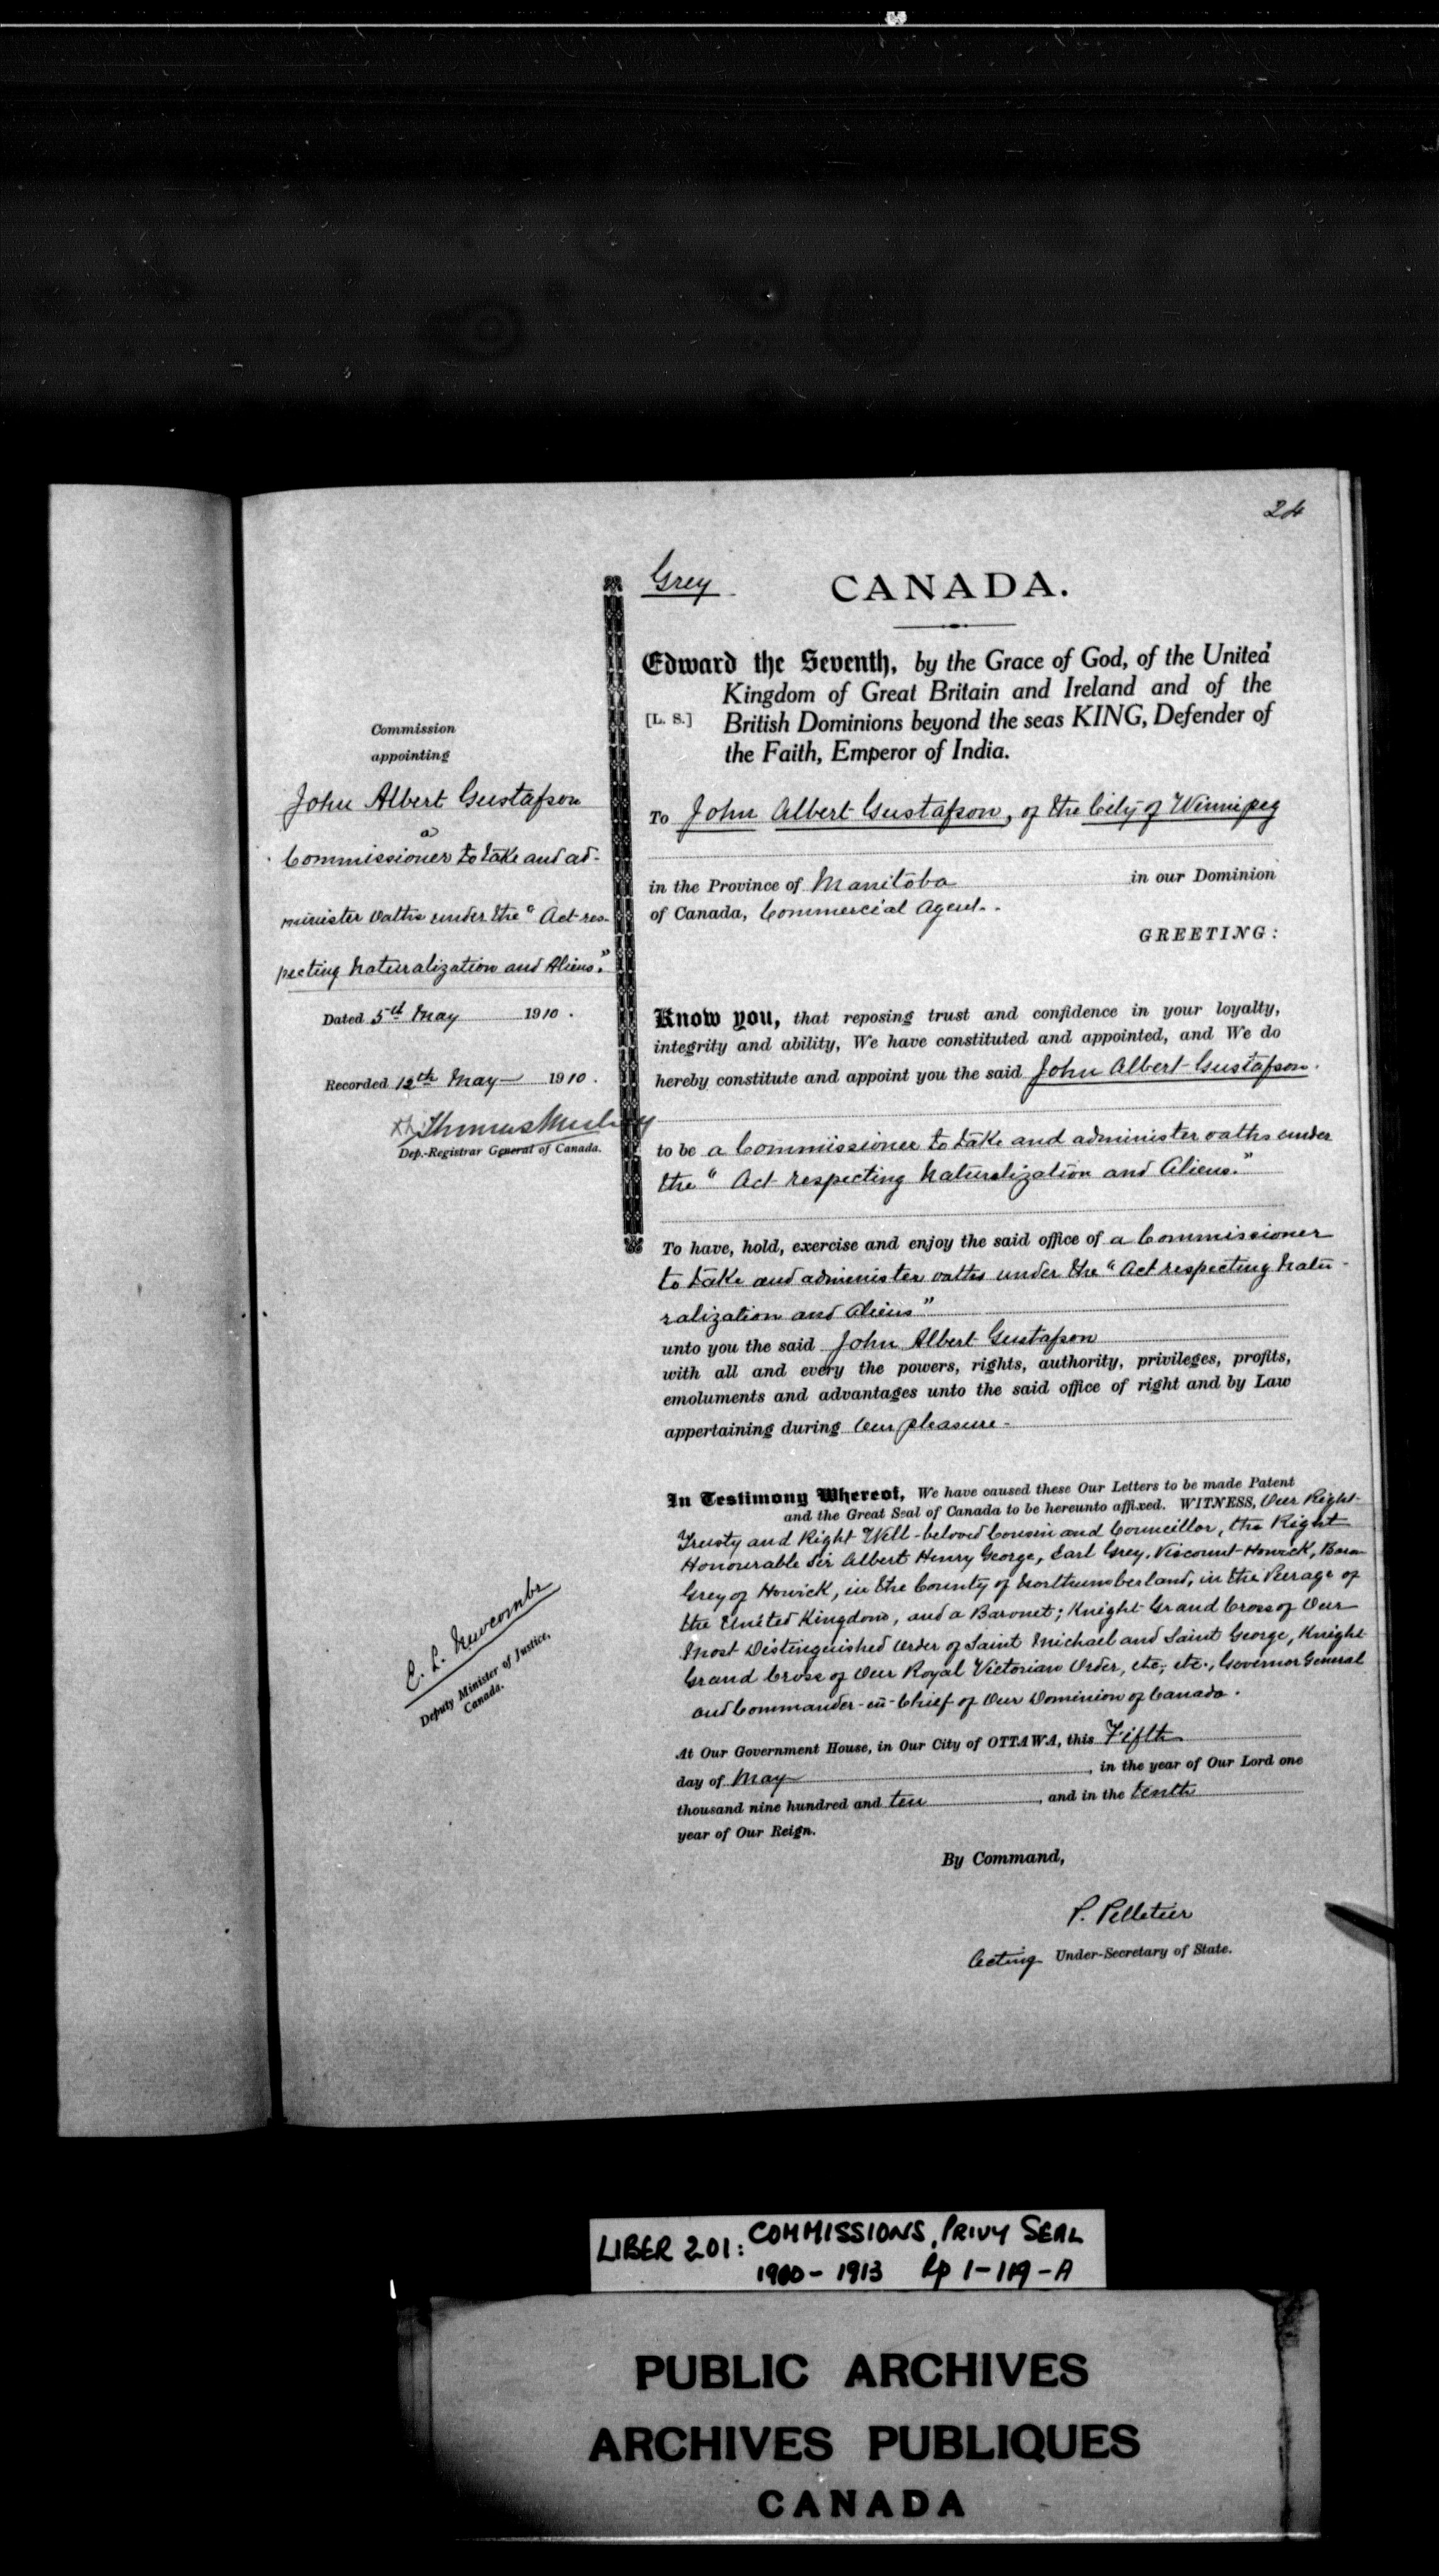 24
Grey
CANADA.
Edward the Seventh, by the Grace of God, of the United
Kingdom of Great Britain and Ireland and of the
[L. S.] British Dominions beyond the seas KING, Defender of
the Faith, Emperor of India.
Commission
appointing
John Albert Gustafson
a
Commissioner to take and ad-
minister oaths under the "Act res-
pecting Naturalization and Aliens."
Dated 5th May 1910.
Recorded 12th May 1910.
Thomas Mulvey
Dep.-Registrar General of Canada.
To John Albert Gustafson, of the City of Winnipeg
in the Province of Manitoba in our Dominion
of Canada, Commercial Agent.
GREETING:
Know you, that reposing trust and confidence in your loyalty,
integrity and ability, We have constituted and appointed, and We do
hereby constitute and appoint you the said John Albert Gustafson.
to be a Commissioner to take and administer oaths under
the "Act respecting Naturalization and Aliens."
To have, hold, exercise and enjoy the said office of a Commissioner
to take and administer oaths under the "Act respecting Natu-
ralization and Aliens"
unto you the said John Albert Gustafson
with all and every the powers, rights, authority, privileges, profits,
emoluments and advantages unto the said office of right and by Law
appertaining during Our pleasure -
In Testimony Whereof, We have caused these Our Letters to be made Patent
and the Great Seal of Canada to be hereunto affixed. WITNESS, Our Right
Trusty and Right Well-beloved Cousin and Councillor, the Right
Honourable Sir Albert Henry George, Earl Grey, Viscount Howick, Baron
Grey of Howick, in the County of Northumberland, in the Peerage of
the United Kingdom, and a Baronet; Knight Grand Cross of Our
Most Distinguished Order of Saint Michael and Saint George, Knight
Grand Cross of Our Royal Victorian Order, etc., etc., Governor General
and Commander-in-Chief of Our Dominion of Canada.
At Our Government House, in Our City of OTTAWA, this Fifth
day of May, in the year of Our Lord one
thousand nine hundred and ten, and in the tenth
year of Our Reign.
By Command,
P. Pelletier
Acting Under-Secretary of State.
E. L. Newcombe
Deputy Minister of Justice,
Canada.
LIBER 201: COMMISSIONS, PRIVY SEAL
1910 - 1913 pp 1-119-A
PUBLIC ARCHIVES
ARCHIVES PUBLIQUES
CANADA